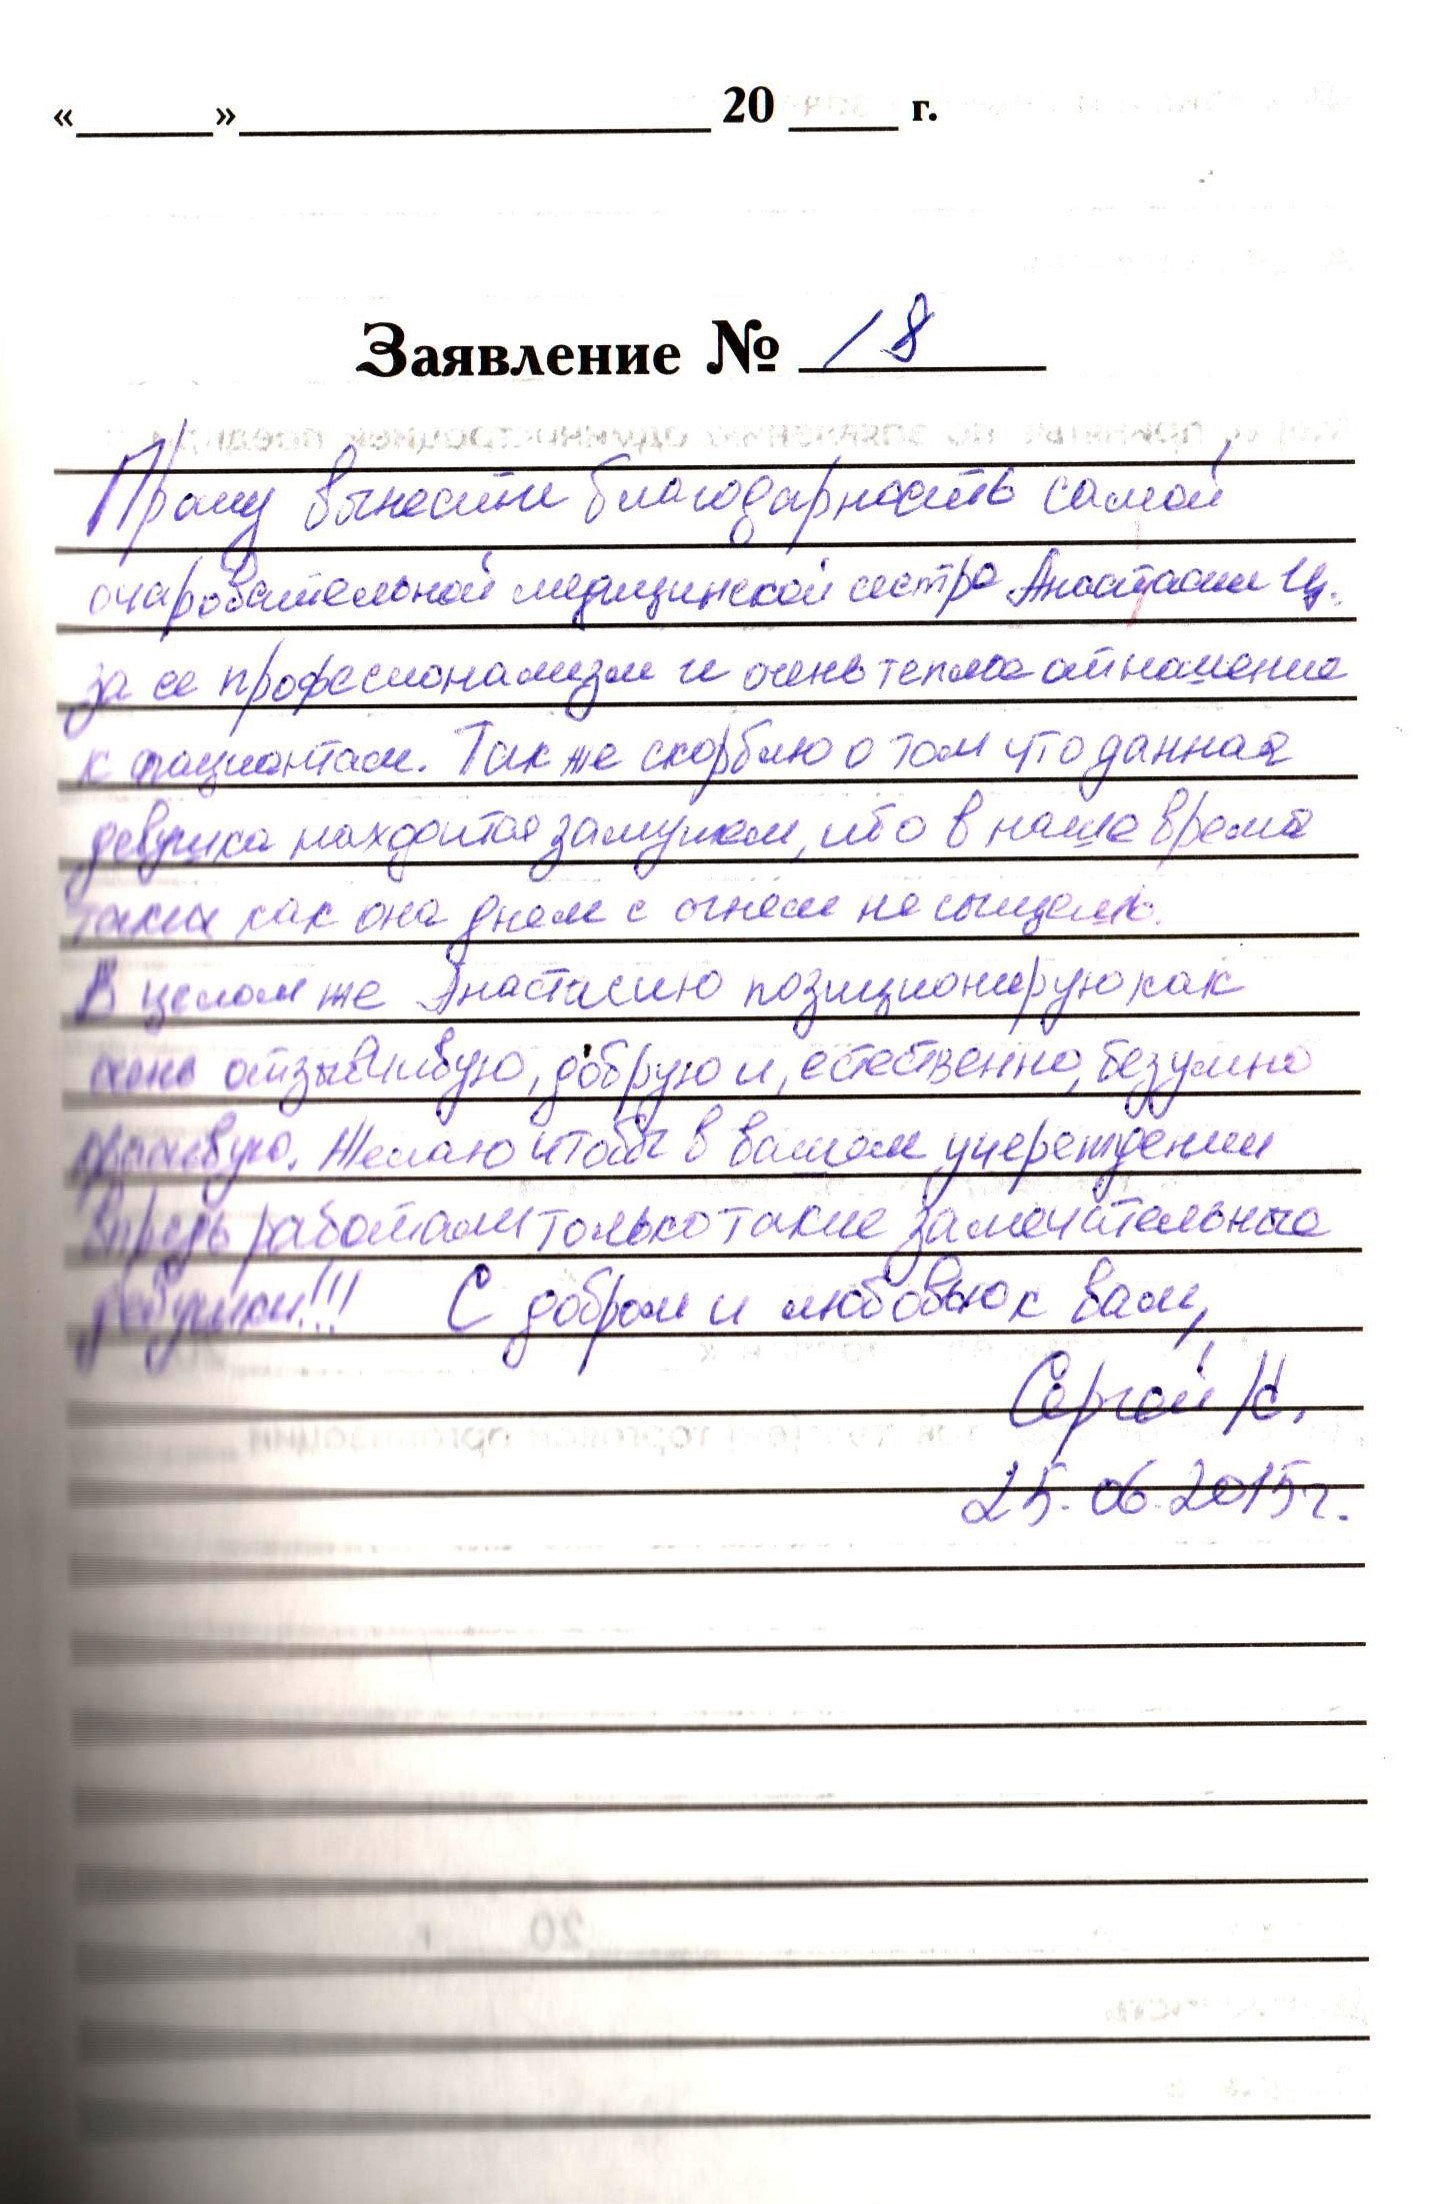 «______»____________________ 20 ____ г.
Заявление № 18
Прошу вынести благодарность самой
очаровательной медицинской сестре Анастасии Ц.
за ее професионализм и очень теплое отношение
к пациентам. Так же скорблю о том что данная
девушка находится замужем, ибо в наше время
таких как она днем с огнем не сыщешь.
В целом же Анастасию позиционирую как
очень отзывчивую, добрую и, естественно, безумно
красивую. Желаю чтобы в вашем учереждении
впредь работали только такие замечательные
девушки!!! С добром и любовью к вам,
Сергей К.
25.06.2015г.